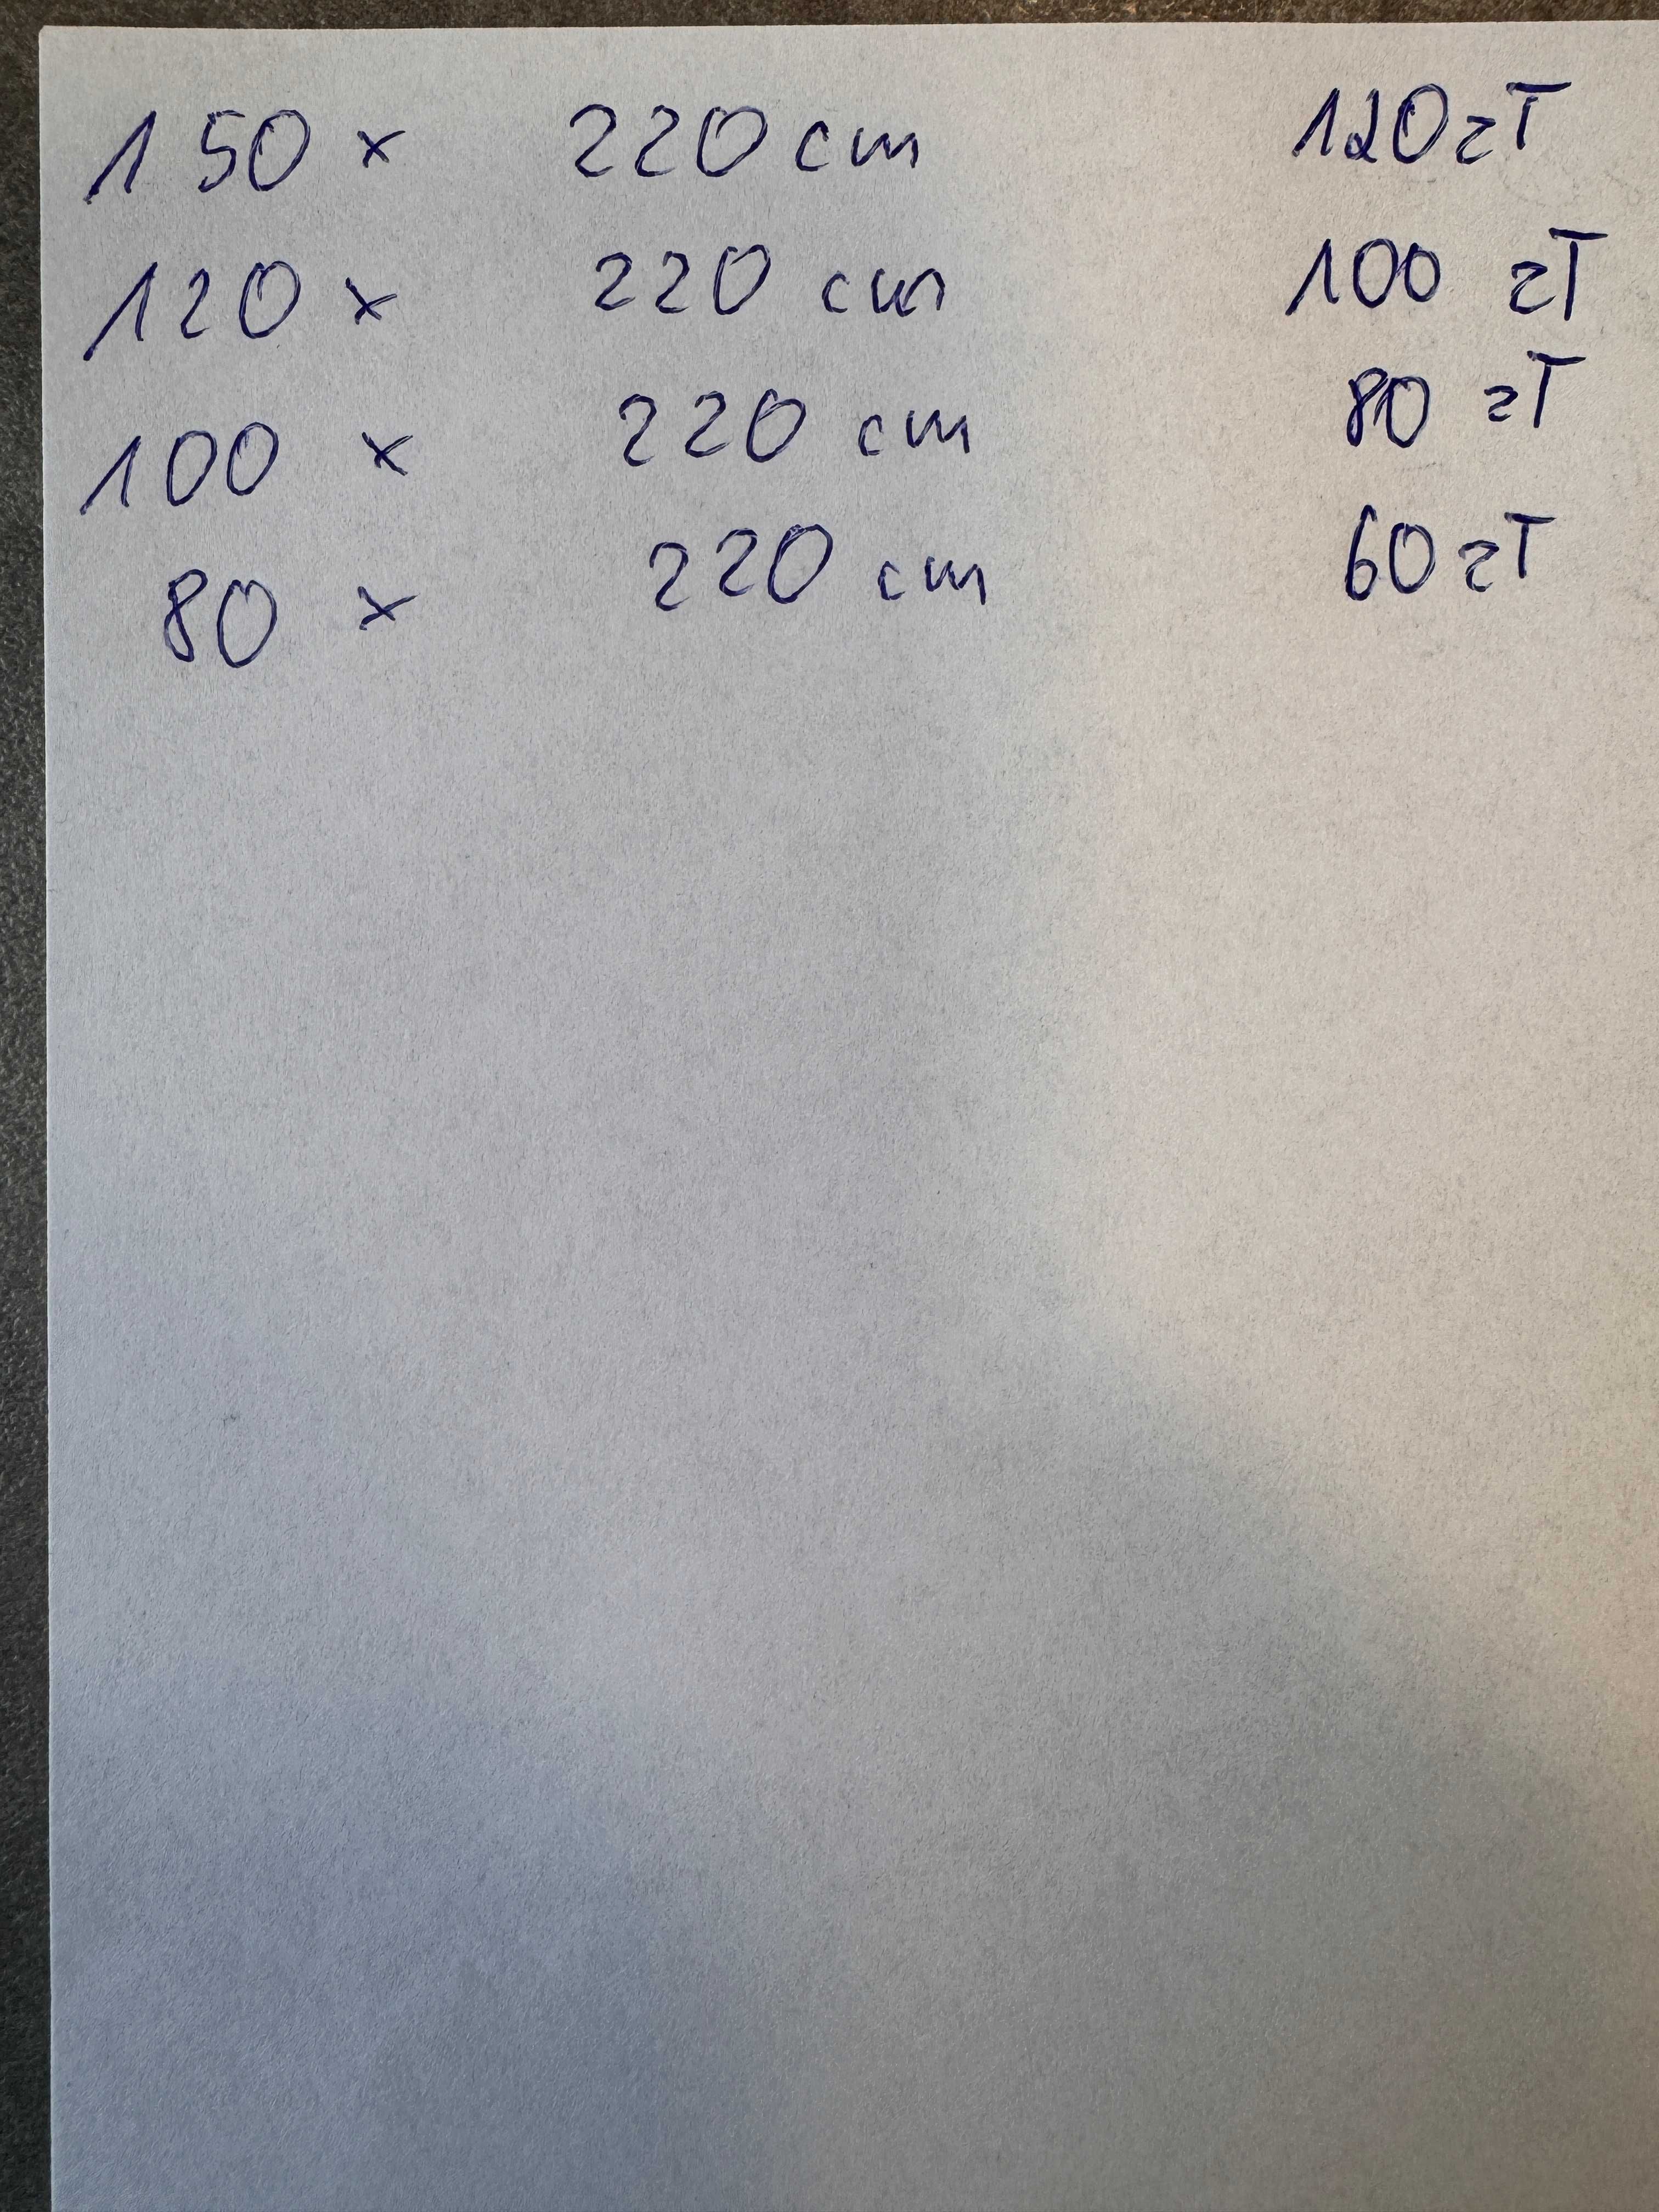 150 x 220 cm 120 zT
120 x 220 cm 100 zT
100 x 220 cm 80 zT
80 x 220 cm 60 zT